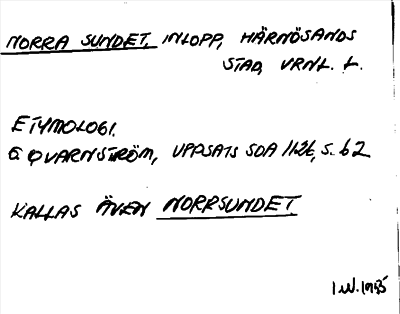 NORRA SUNDET, INLOPP, HÄRNÖSANDS
STAD, VRNL. L.
ETYMOLOGI.
G QVARNSTRÖM, UPPSATS SOA 1126, S. 62
KALLAS ÄVEN NORRSUNDET.
I.W. 1985